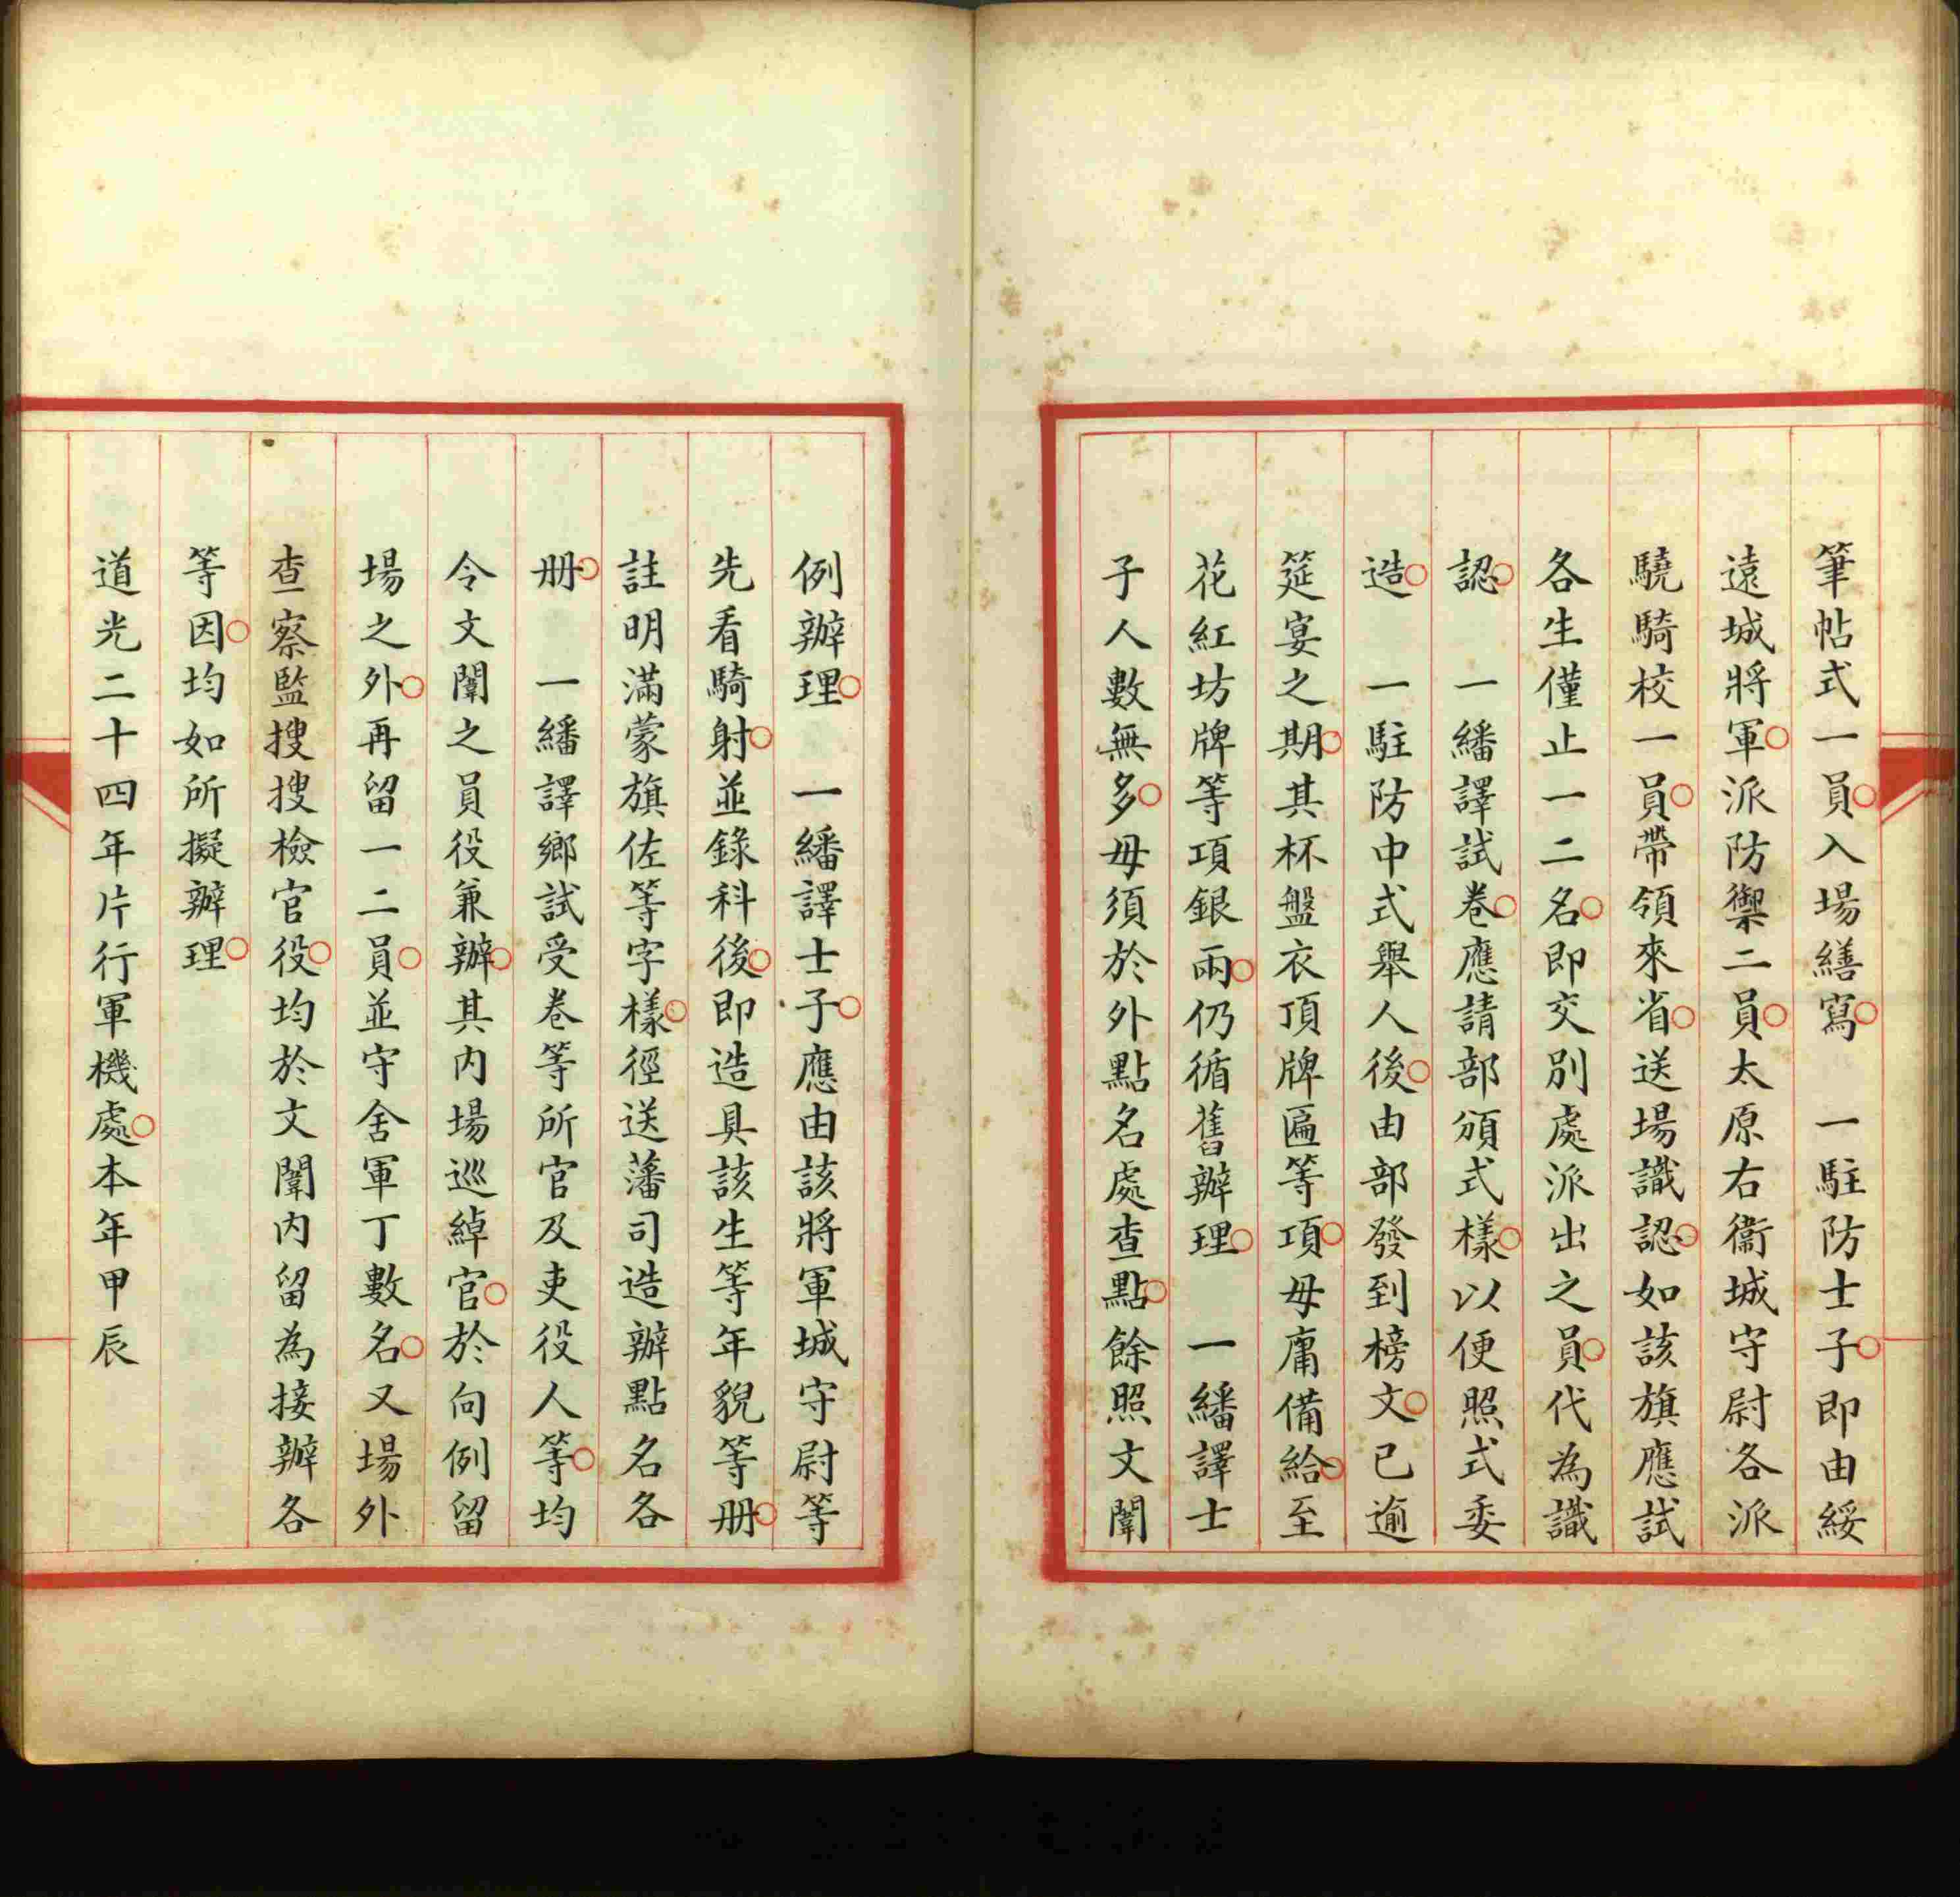 筆帖式一員○入場繕寫○　一駐防士子○即由綏
遠城將軍○派防禦二員○太原右衞城守尉各派
驍騎校一員○帶領來省○送場識認○如該旗應試
各生僅止一二名○即交別處派出之員○代為識
認○　一繙譯試卷○應請部頒式樣○以便照式委
造○　一駐防中式舉人後○由部發到榜文○已逾
筵宴之期○其杯盤衣頂牌匾等項○毋庸備給○至
花紅坊牌等項銀兩○仍循舊辦理○　一繙譯士
子人數無多○毋須於外點名處查點○餘照文闈
例辦理○　一繙譯士子○應由該將軍城守尉等
先看騎射○並錄科後○即造具該生等年貌等册○
註明滿蒙旗佐等字樣○徑送藩司造辦點名各
册○　一繙譯鄉試受卷等所官及吏役人等○均
令文闈之員役兼辦○其內場巡綽官○於向例留
場之外○再留一二員○並守舍軍丁數名○又場外
查察監搜搜檢官役○均於文闈內留為接辦各
等因○均如所擬辦理○
道光二十四年片行軍機處○本年甲辰